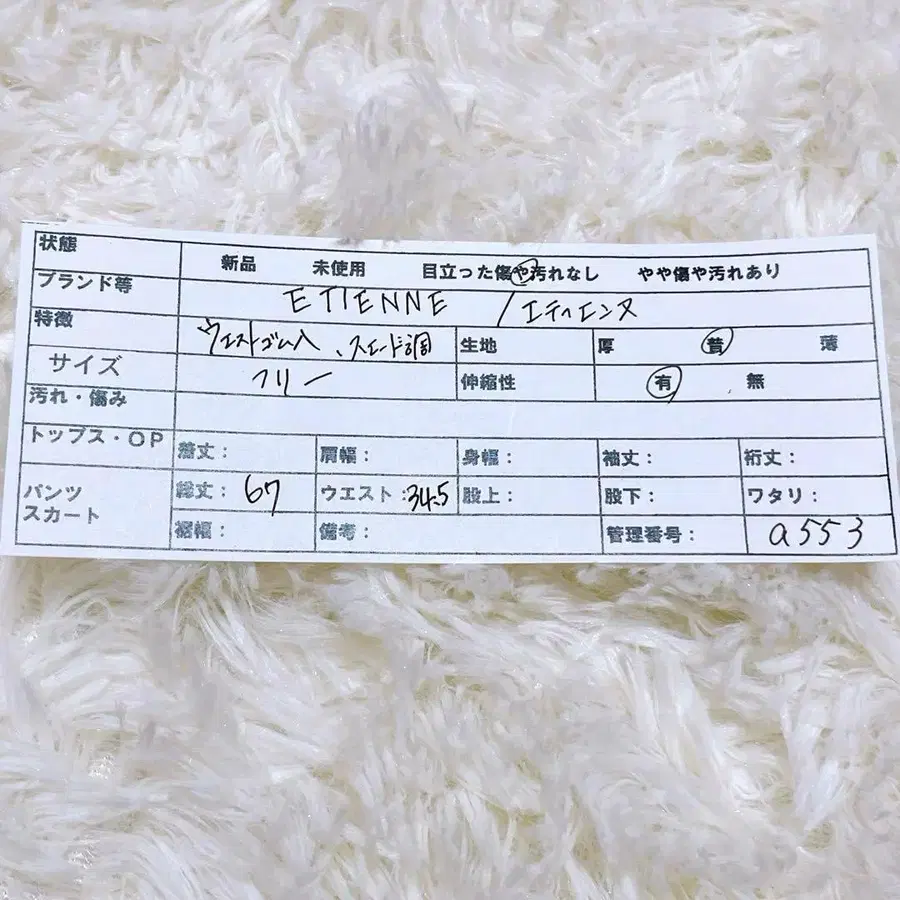 状態 新品 未使用 目立った傷や汚れなし やや傷や汚れあり
ブランド等 ETIENNE /エティエンヌ
特徴 ウエストゴム入、スエード調 生地 厚 普 薄
サイズ フリー 伸縮性 有 無
汚れ・傷み
トップス・OP 着丈: 肩幅: 身幅: 袖丈: 裄丈:
パンツ スカート 総丈: 67 ウエスト: 34.5 股上: 股下: ワタリ:
裾幅: 備考: 管理番号: a553